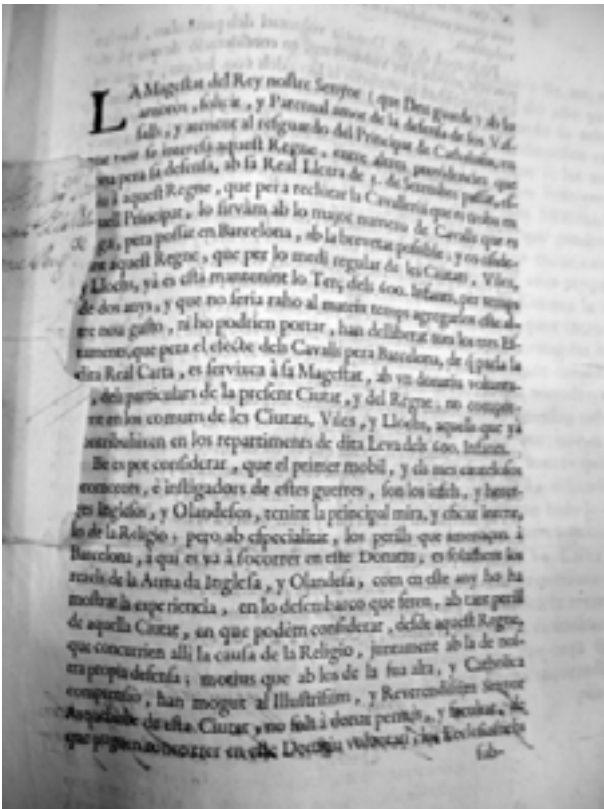 LA Magestat del Rey nostre Senyor (que Deu guarde) ab lo
amoros, solicit, y Paternal amor de la defensa de sos Vas-
salls, y atenent al resguardo del Principat de Cathaluña, en
que tant se interesa aquest Regne, entre altres providencies que
pera sa defensa, ab sa Real Lletra de de Setembre passat,
à aquest Regne, que pera reclutar la Cavalleria que es troba en
Principat, lo sirvàm ab lo major numero de Cavalls que es
pera possar en Barcelona, ab la brevetat posible, y en
aquest Regne, que per lo medi regular de les Ciutats, Viles,
y Llochs, yà es està mantenint lo Terç dels 600. Infants, per temps
de dos anys, y que no seria raho al mateix temps agregarlos este al-
tre nou gasto, ni ho podrien portar, han deliberat tots los tres Es-
taments, que pera el efecte dels Cavalls pera Barcelona, de q parla la
dita Real Carta, es servixca à sa Magestat, ab vn donatiu volunta-
, dels particulars de la present Ciutat, y del Regne, no
en los comuns de les Ciutats, Viles, y Llochs, aquells que yà
contribuixen en los repartiments de dita Leva dels 600. Infants.
Be es pot considerar, que el primer mobil, y els mes
, è instigadors de estes guerres, son los infels, y heret-
ges Inglesos, y Olandesos, tenint la principal mira, y eficàs intent,
de la Religio; pero ab especialitat, los perills que amenaçen à
Barcelona, à qui es và à socorrer en este Donatiu, es
de la Armada Inglesa, y Olandesa, com en este any ho ha
mostrat la experiencia, en lo desembarco que feren, ab tant perill
de aquella Ciutat, en que podèm considerar, desde aquest Regne,
que concurrien alli la causa de la Religio, juntament ab la de nos-
tra propia defensa; motius que ab los de la sua alta, y Catholica
, han mogut al Illustrisim, y Reverendisim Senyor
Archebisbe de esta Ciutat, no sols à donar permis, y facultat, de
que puguen concorrer en este Donatiu voluntari, los Eclesiastichs
sob-